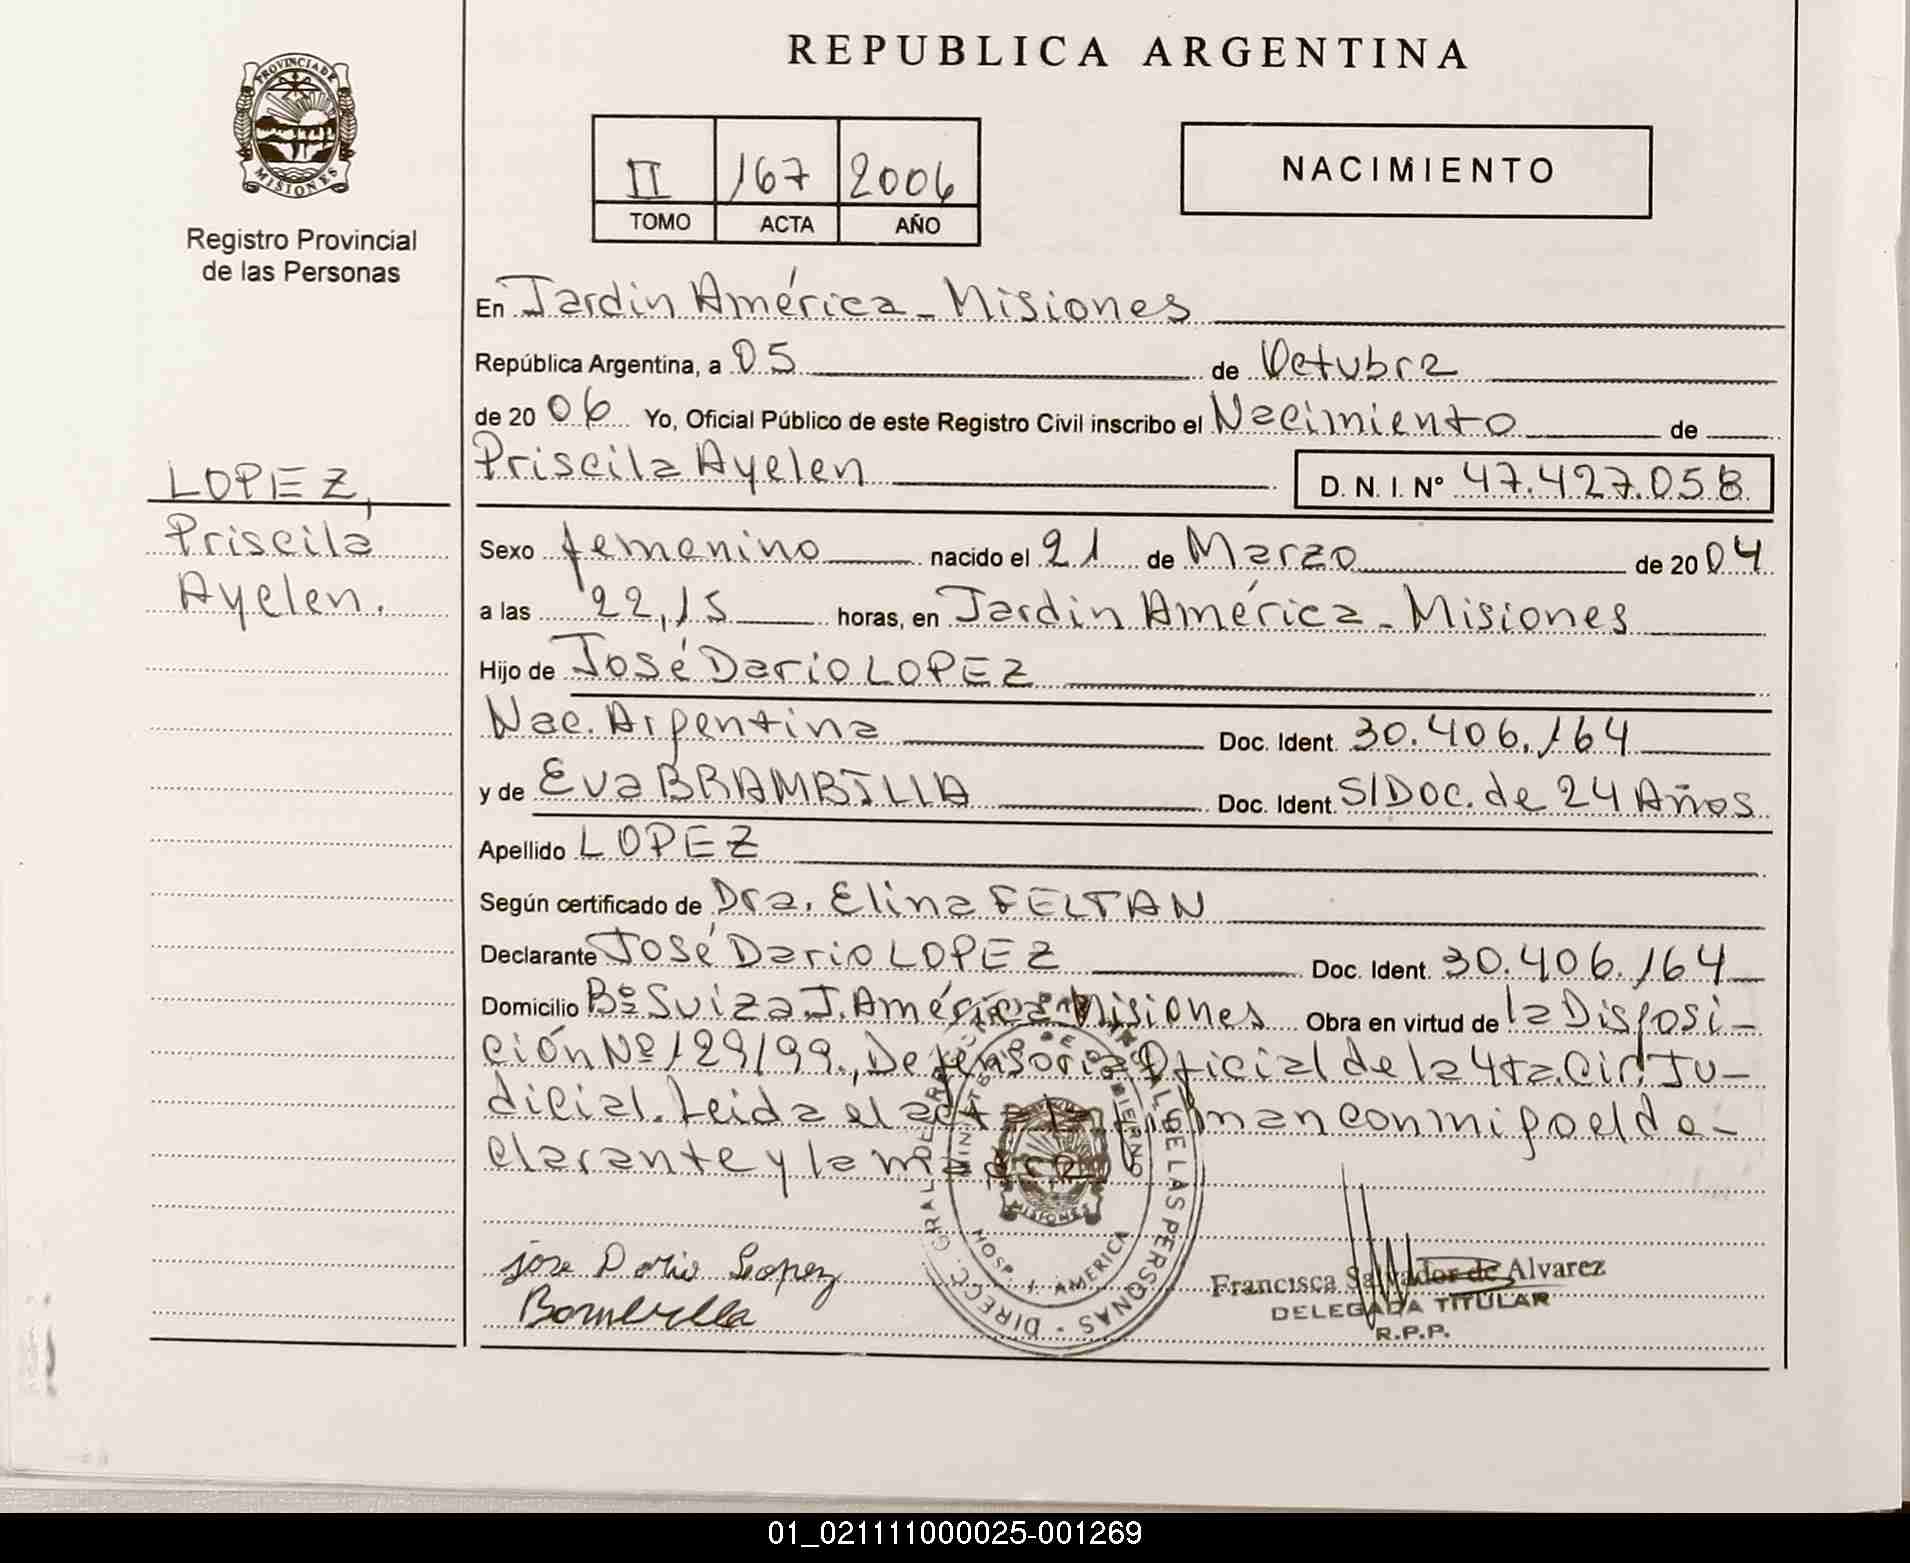 REPUBLICA ARGENTINA
PROVINCIA DE
MISIONES
Registro Provincial
de las Personas
II 167 2006
TOMO ACTA AÑO
NACIMIENTO
En Jardin América - Misiones
República Argentina, a 05 de Octubre
de 20 06 Yo, Oficial Público de este Registro Civil inscribo el Nacimiento de
Priscila Ayelen D. N. I. Nº 47.427.058
LOPEZ,
Priscila
Ayelen.
Sexo femenino nacido el 21 de Marzo de 20 04
a las 22,15 horas, en Jardin América - Misiones
Hijo de José Dario LOPEZ
Nac. Argentina Doc. Ident. 30.406.164
y de Eva BRAMBILLA Doc. Ident. S/Doc. de 24 Años
Apellido LOPEZ
Según certificado de Dra. Elina FELTAN
Declarante José Dario LOPEZ Doc. Ident. 30.406.164
Domicilio Bº Suiza J. América Misiones Obra en virtud de la Disposi-
ción Nº 129/99., Defensoria Oficial de la 4ta. Cir. Ju-
dicial. Leida el acta la firman conmigo el de-
clarante y la madre
jose Dario Lopez
DIRECC. GRAL. DE REGISTRO PROVINCIAL DE LAS PERSONAS
MINISTERIO DE GOBIERNO
HOSP. J. AMERICA
MISIONES
Francisca Salvador de Alvarez
DELEGADA TITULAR
R.P.P.
01_021111000025-001269